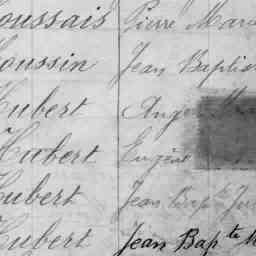 oussais Pierre Marie
oussin Jean Baptis
Hubert Ange
Hubert Eugène
Hubert Jean Bapte
Hubert Jean Bapte